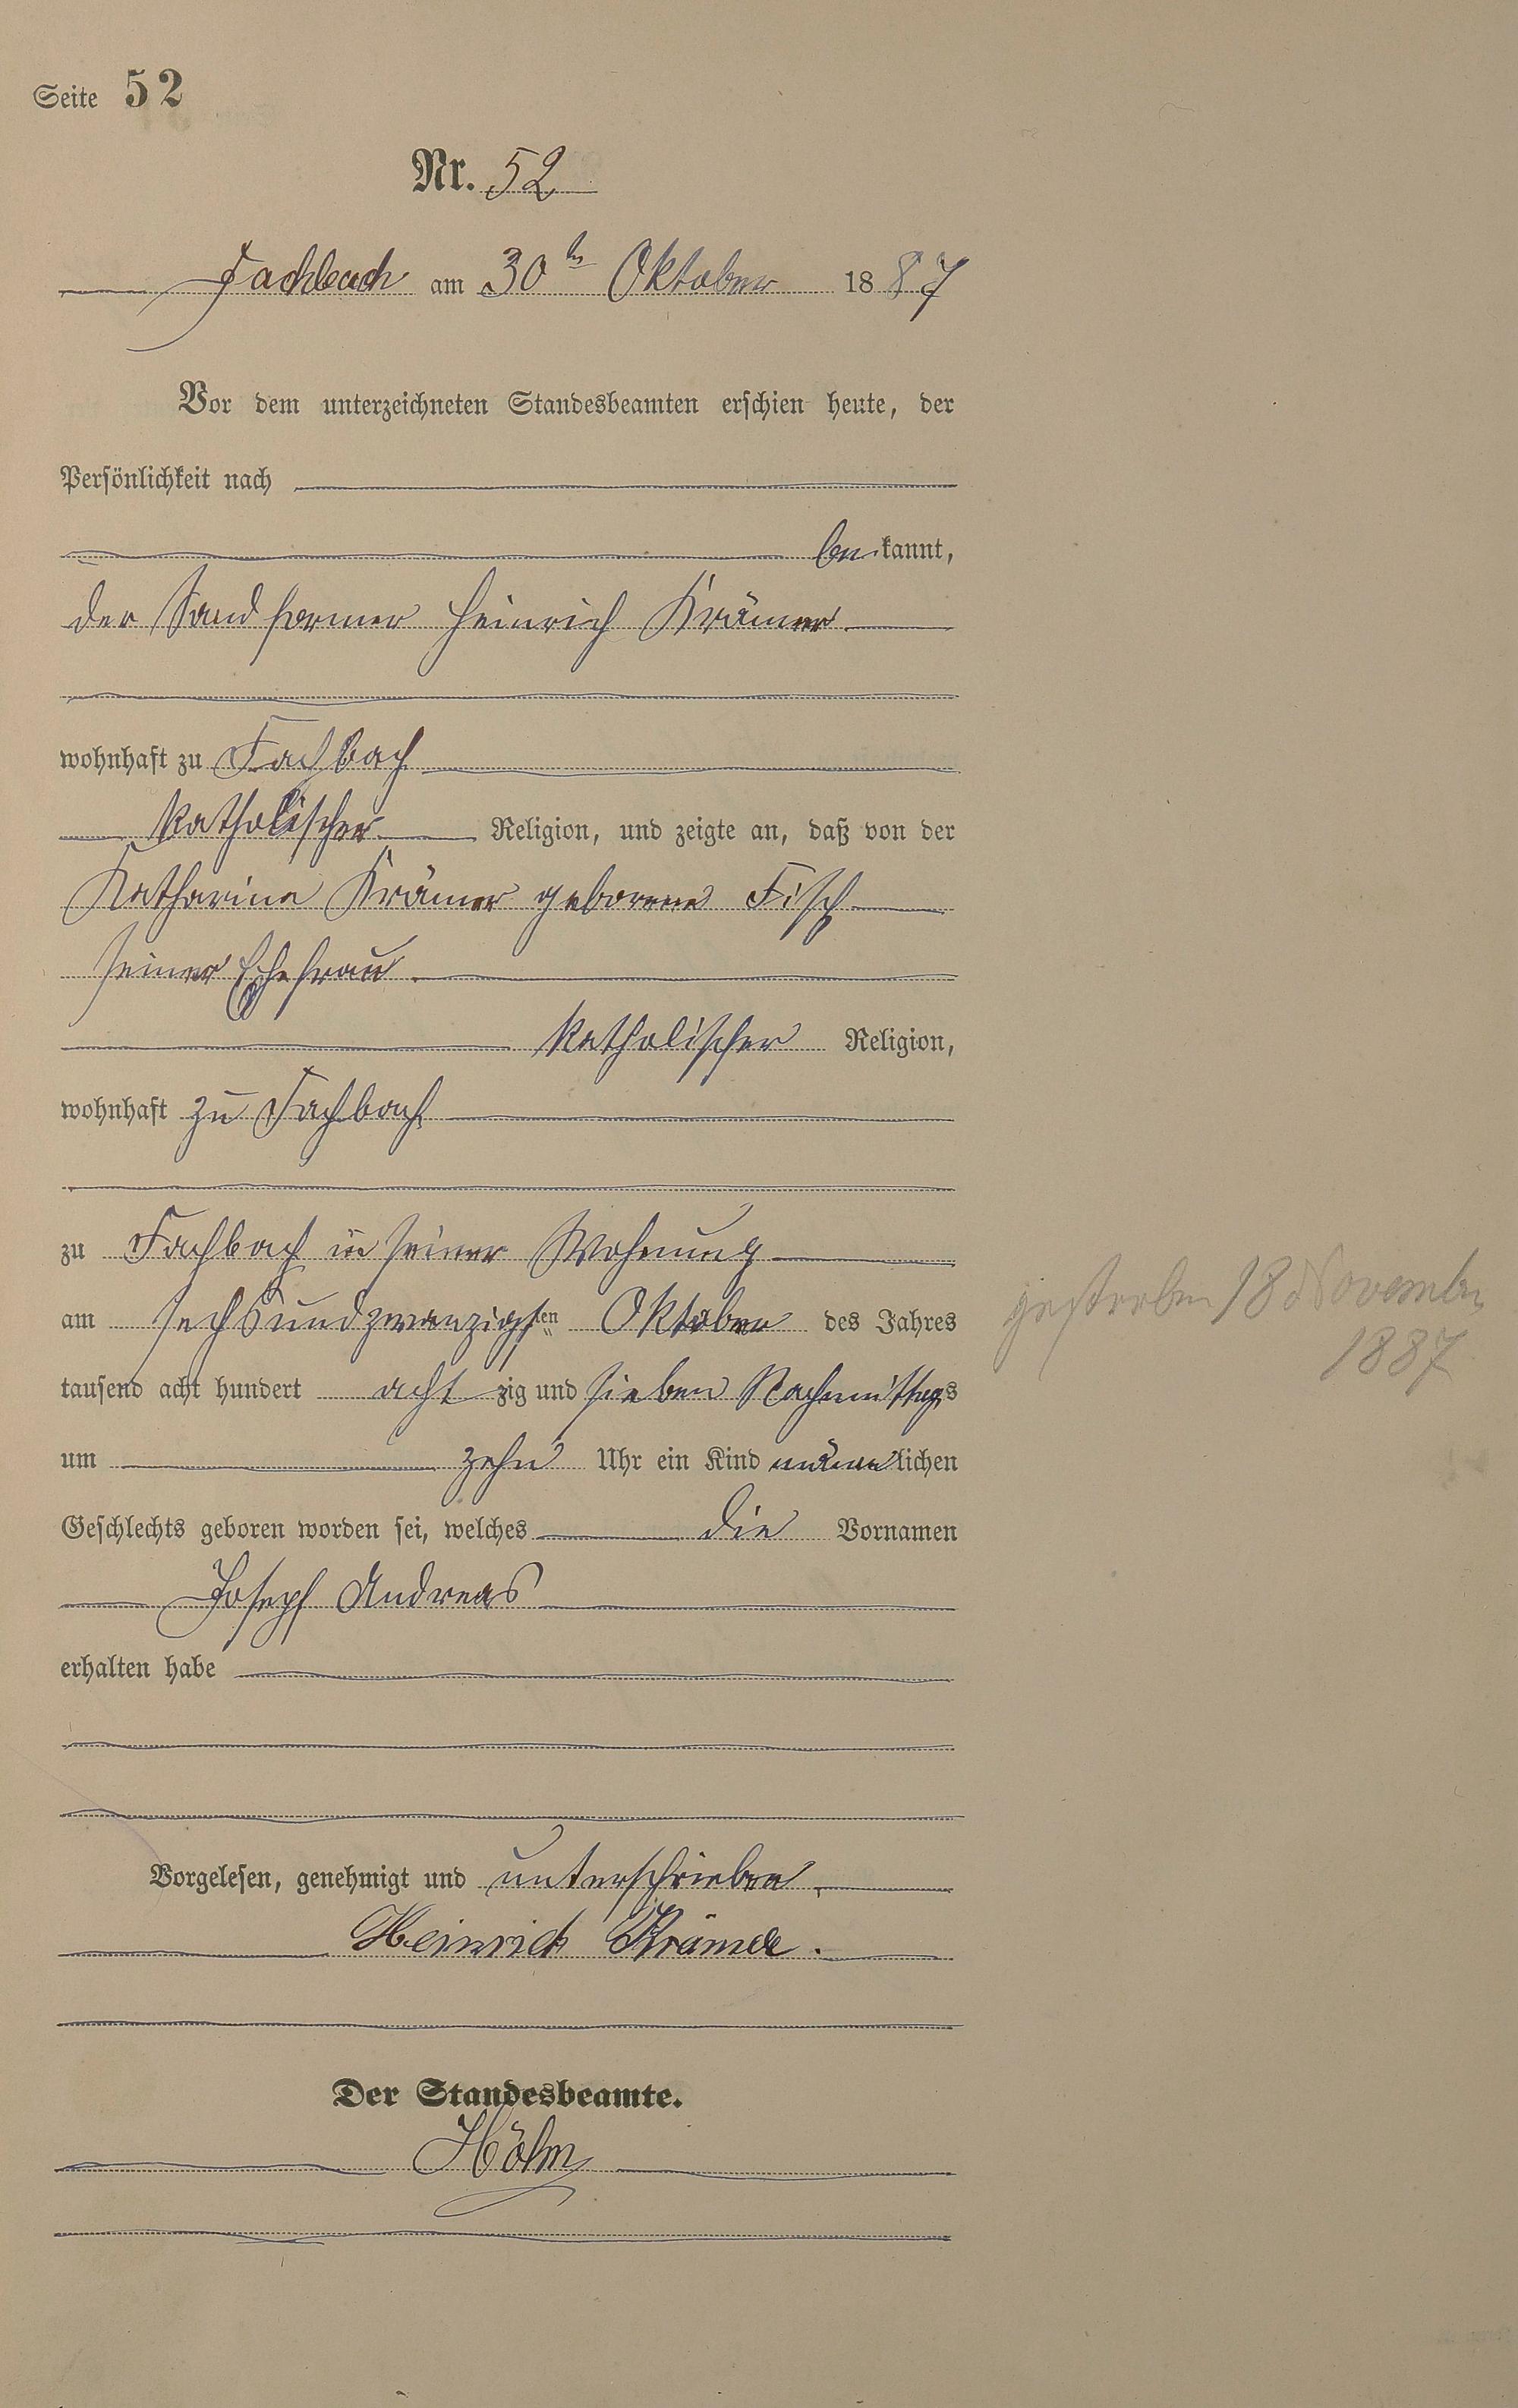 Seite 52
Nr. 52
Fachbach am 30ten Oktober 1887
Vor dem unterzeichneten Standesbeamten erschien heute, der
Persönlichkeit nach
bekannt,
der Sandformer Heinrich Krämer
wohnhaft zu Fachbach
katholischer Religion, und zeigte an, daß von der
Katharina Krämer geborene Fisch
seiner Ehefrau
katholischer Religion,
wohnhaft zu Fachbach
zu Fachbach in seiner Wohnung
am sechsundzwanzigsten Oktober des Jahres
gestorben 18 November
1887
tausend acht hundert achtzig und sieben Nachmittags
um zehn Uhr ein Kind männlichen
Geschlechts geboren worden sei, welches die Vornamen
Joseph Andreas
erhalten habe
Vorgelesen, genehmigt und unterschrieben
Heinrich Krämer.
Der Standesbeamte.